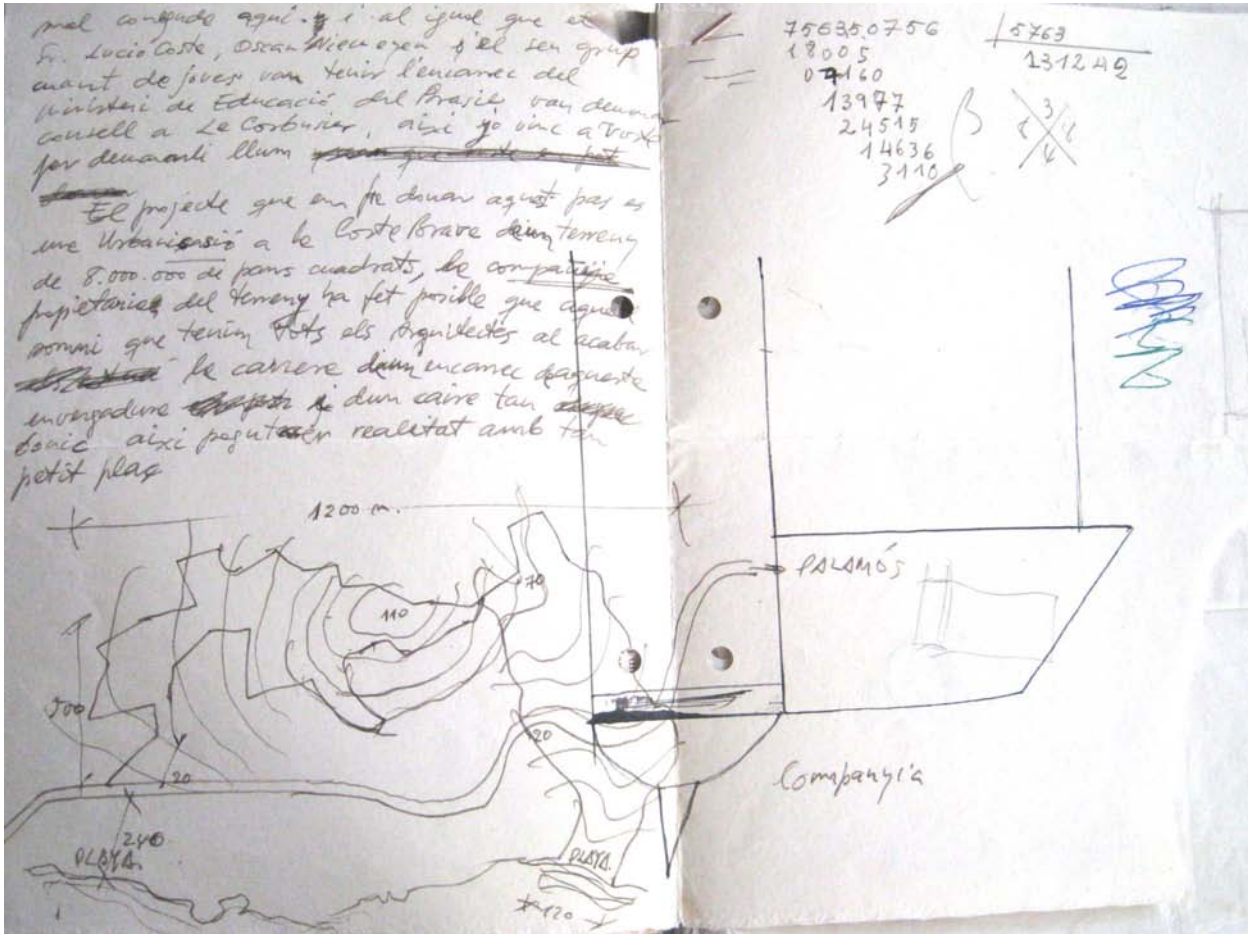 mal congude aquí. i al igual que el
Sr. Lucio Coste, Oscar Niemeyen i el seu grup
de joves van tenir l'encarrec del
ministeri de Educació del Brasil, van
consell a Le Corbusier, aixi jo vinc a Voste
per demanarli llum
El projecte que em fa donar aquest pas es
une Urbanisasió a la Coste Brave terreny
de 8.000.000 de pams cuadrats, la companyie
propietaries del terreny ha fet posible que aquell
somni que tenim Tots els Arquitectes al acabar
la carrere encarrec daqueste
envergadure i dun caire tan
bonic aixi realitat amb tan
petit plaç
1200 m.
110
70
500
20
20
240
PLAYA.
PLAYA.
120
756350756 5763
18005 131242
07160
13977
24515
14636
3110
3
4
PALAMÓS
Companyia